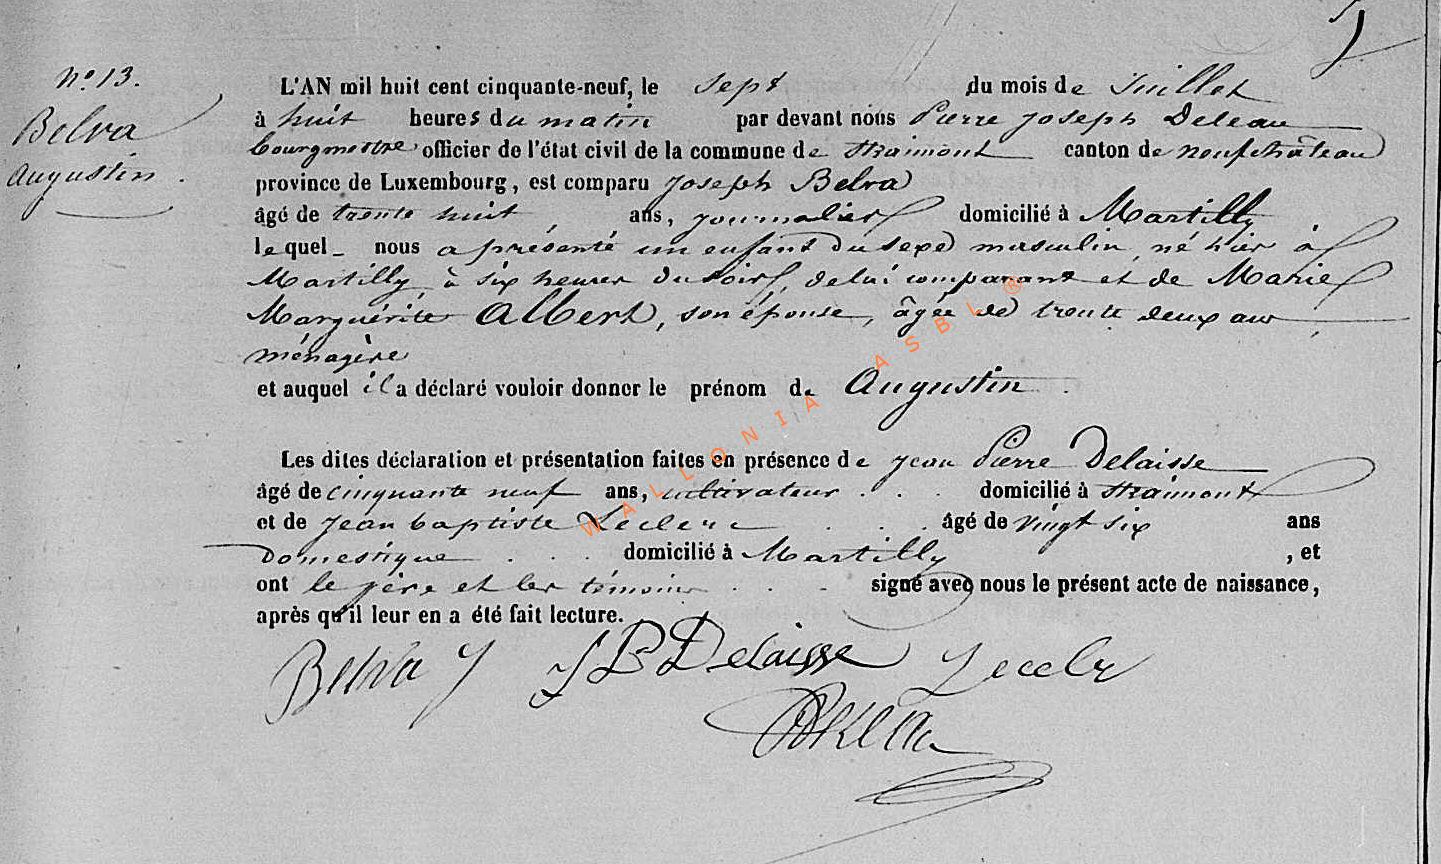 5
n° 13.
Belva
augustin.
L'AN mil huit cent cinquante-neuf, le sept du mois de Juillet
à huit heures du matin par devant nous Pierre Joseph Deleau
bourgmestre officier de l'état civil de la commune de Straimont canton de neufchâteau
province de Luxembourg, est comparu Joseph Belva
âgé de trente huit ans, journalier domicilié à Martilly
lequel nous a présenté un enfant du sexe masculin, né hier à
Martilly, à six heures du soir, de lui comparant et de Marie
Marguérite Albert, son épouse, âgée de trente deux ans
ménagère
et auquel il a déclaré vouloir donner le prénom de Augustin.
Les dites déclaration et présentation faites en présence de jean Pierre Delaisse
âgé de cinquante neuf ans, cultivateur . . . domicilié à Straimont
et de jean baptiste Leclerc . . . âgé de vingt six ans
Domestique . . . domicilié à Martilly , et
ont le père et les témoins . . . signé avec nous le présent acte de naissance,
après qu'il leur en a été fait lecture.
Belva J JP Delaisse
WALLONIA ASBL ®